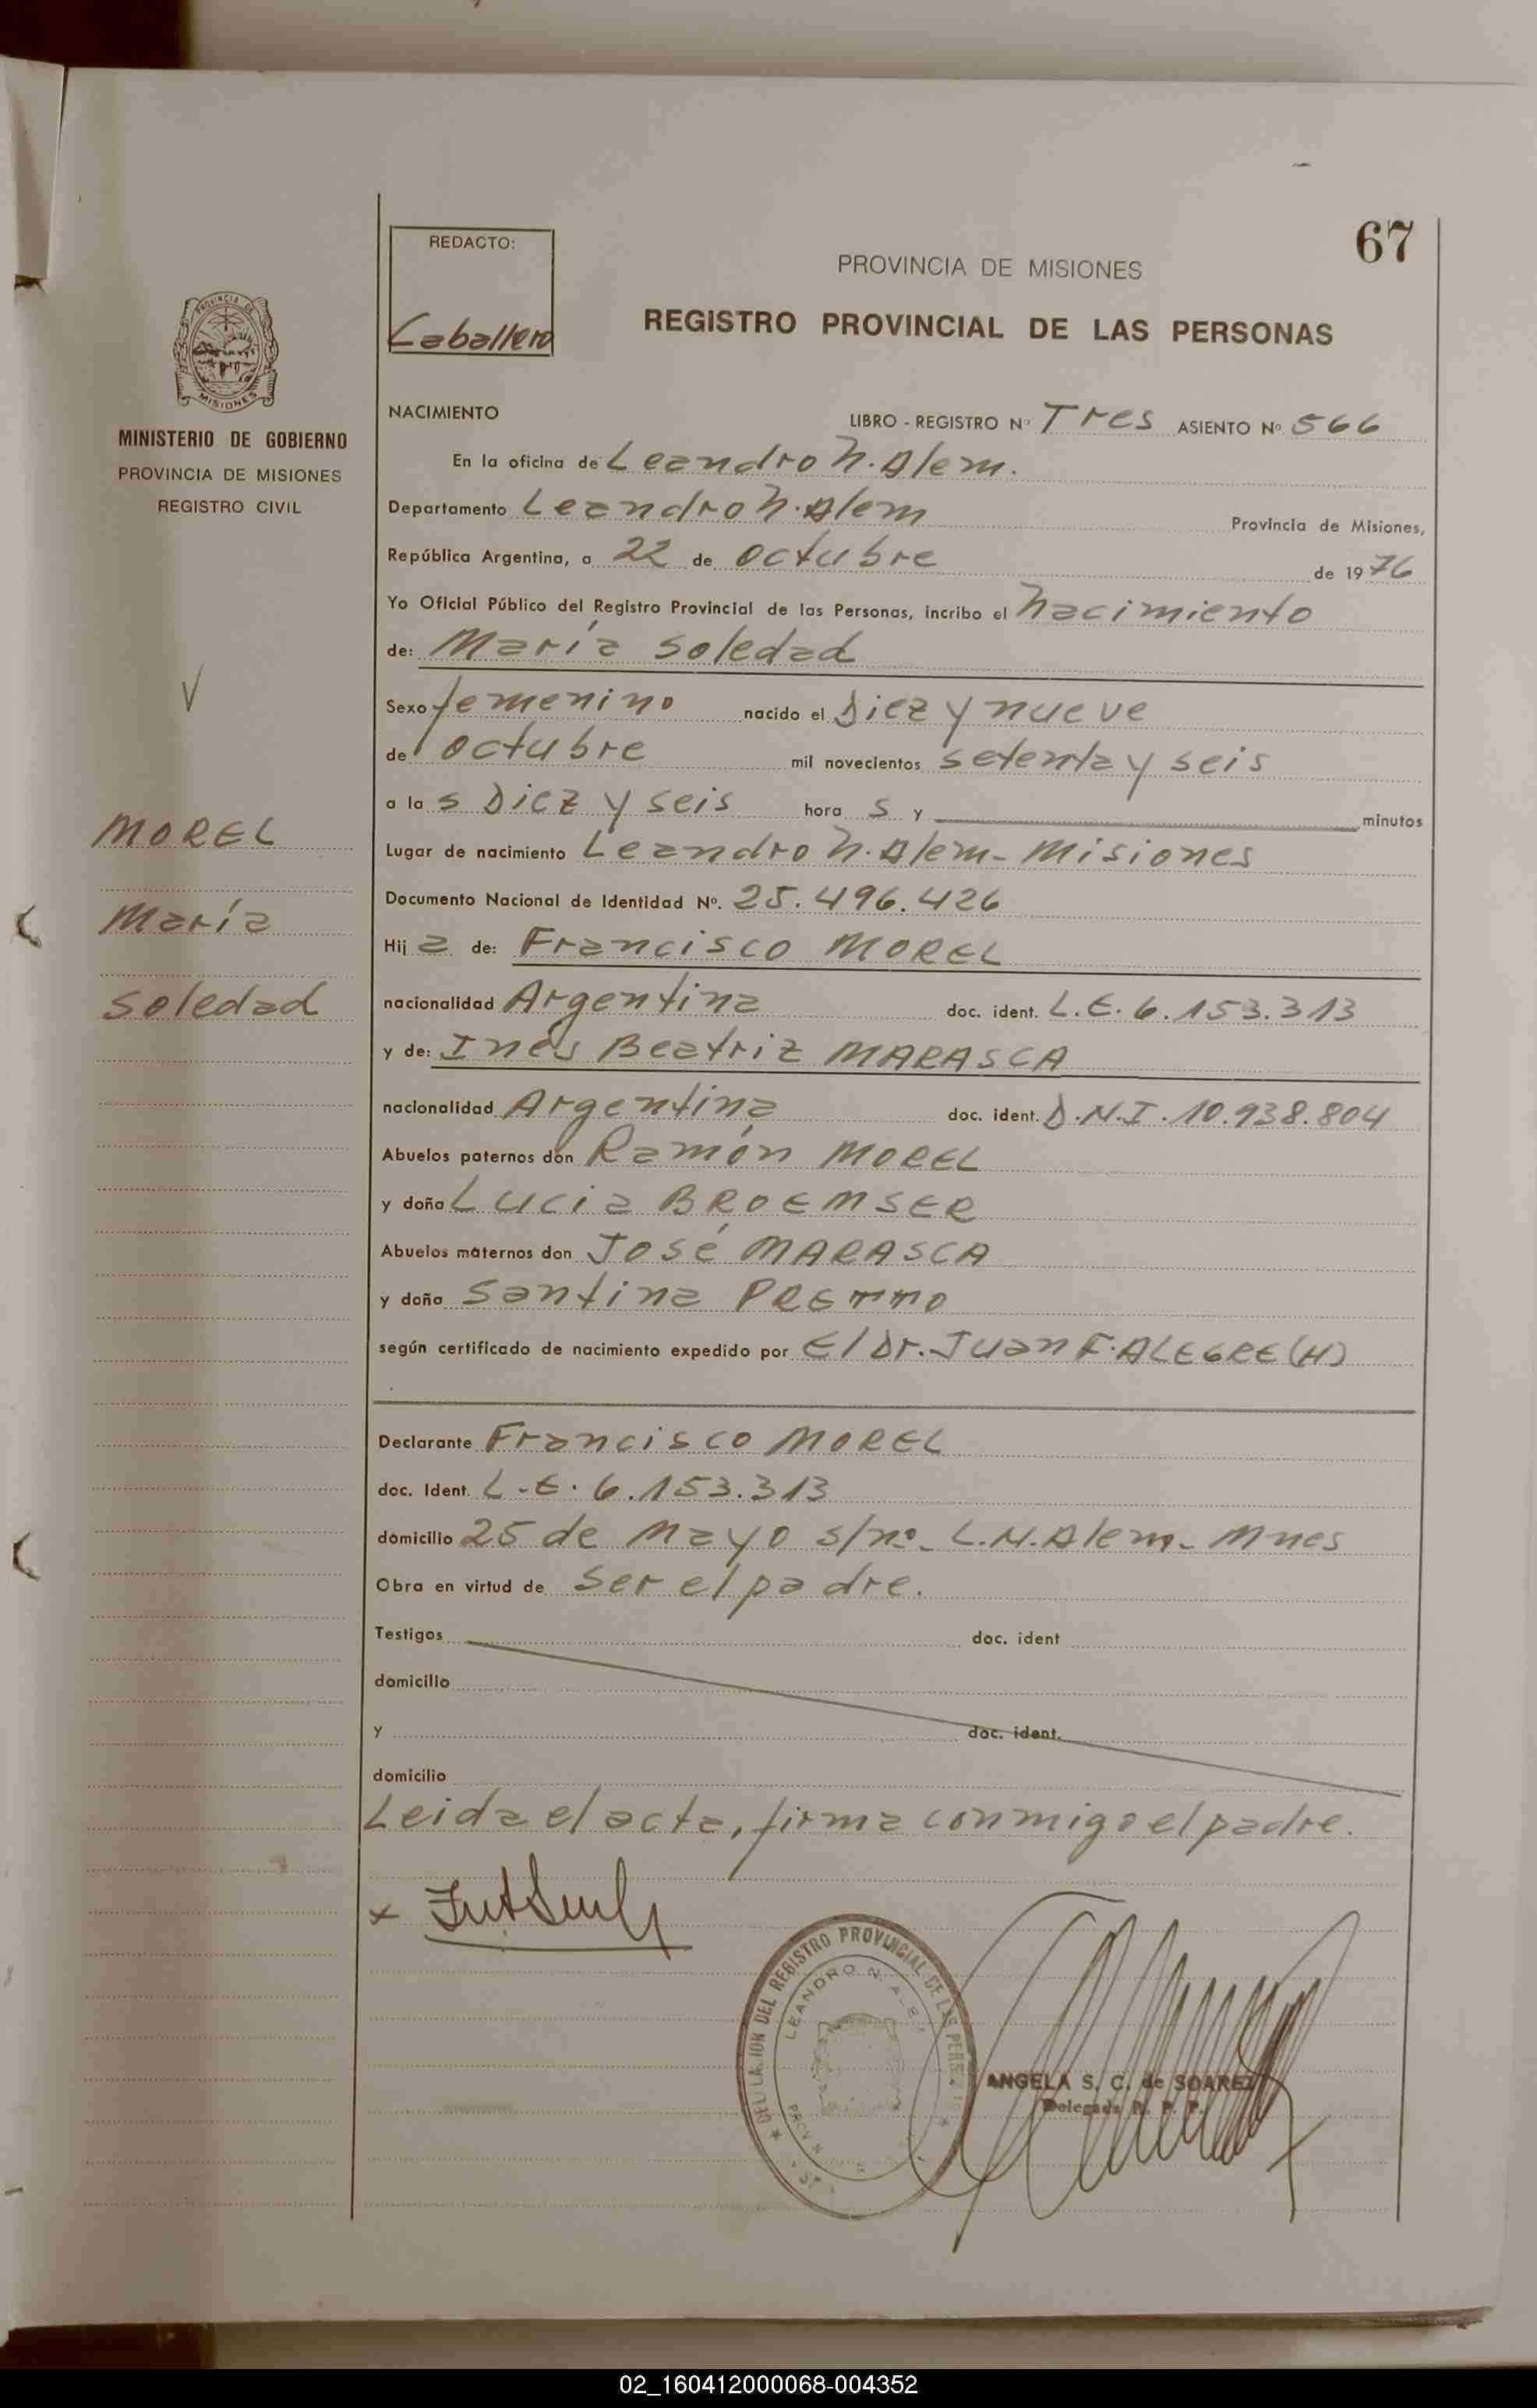 67
REDACTO:
Caballero
PROVINCIA DE MISIONES
REGISTRO PROVINCIAL DE LAS PERSONAS
PROVINCIA DE
MISIONES
MINISTERIO DE GOBIERNO
PROVINCIA DE MISIONES
REGISTRO CIVIL
MOREL
María
Soledad
NACIMIENTO LIBRO - REGISTRO Nº Tres ASIENTO Nº 566
En la oficina de Leandro N. Alem.
Departamento Leandro N. Alem Provincia de Misiones,
República Argentina, a 22 de octubre de 1976
Yo Oficial Público del Registro Provincial de las Personas, incribo el Nacimiento
de: María Soledad
Sexo femenino nacido el Diez y nueve
de octubre mil novecientos setenta y seis
a la s Diez y seis hora s y minutos
Lugar de nacimiento Leandro N. Alem - Misiones
Documento Nacional de Identidad Nº. 25.496.426
Hij a de: Francisco MOREL
nacionalidad Argentina doc. ident. L.E. 6.153.313
y de: Inés Beatriz MARASCA
nacionalidad Argentina doc. ident. D.N.I. 10.938.804
Abuelos paternos don Ramón MOREL
y doña Lucia BROEMSER
Abuelos maternos don José MARASCA
y doña Santina
según certificado de nacimiento expedido por El Dr. Juan F. ALEGRE (H)
Declarante Francisco MOREL
doc. Ident. L.E. 6.153.313
domicilio 25 de Mayo s/nº - L.N. Alem - Mnes
Obra en virtud de ser el padre.
Testigos doc. ident
domicilio
y doc. ident.
domicilio
Leida el acta, firma conmigo el padre.
DEL REGISTRO PROVINCIAL DE LAS
LEANDRO N. ALEM
ANGELA S. C. de SOAREZ
Delegada R. P. P.
02_160412000068-004352